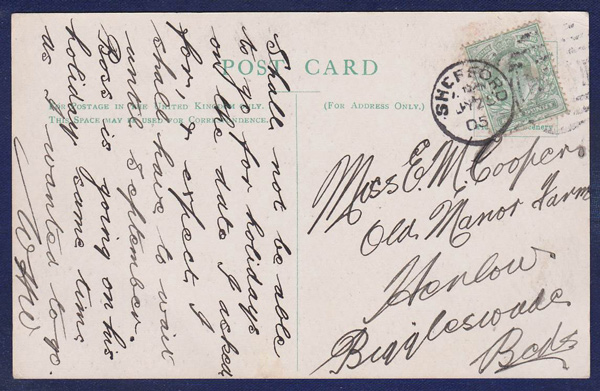 POST CARD
FOR POSTAGE IN THE UNITED KINGDOM ONLY.
THIS SPACE MAY BE USED FOR CORRESPONDENCE.
(FOR ADDRESS ONLY.)
Shall not be able
to go for holidays
on the date I asked
for, & expect I
shall have to wait
until September.
Boss is going on his
holiday same time
as I wanted to go.
SHEFFORD
05
Miss E. M. Cooper
Old Manor Farm
Henlow
Biggleswade
Beds